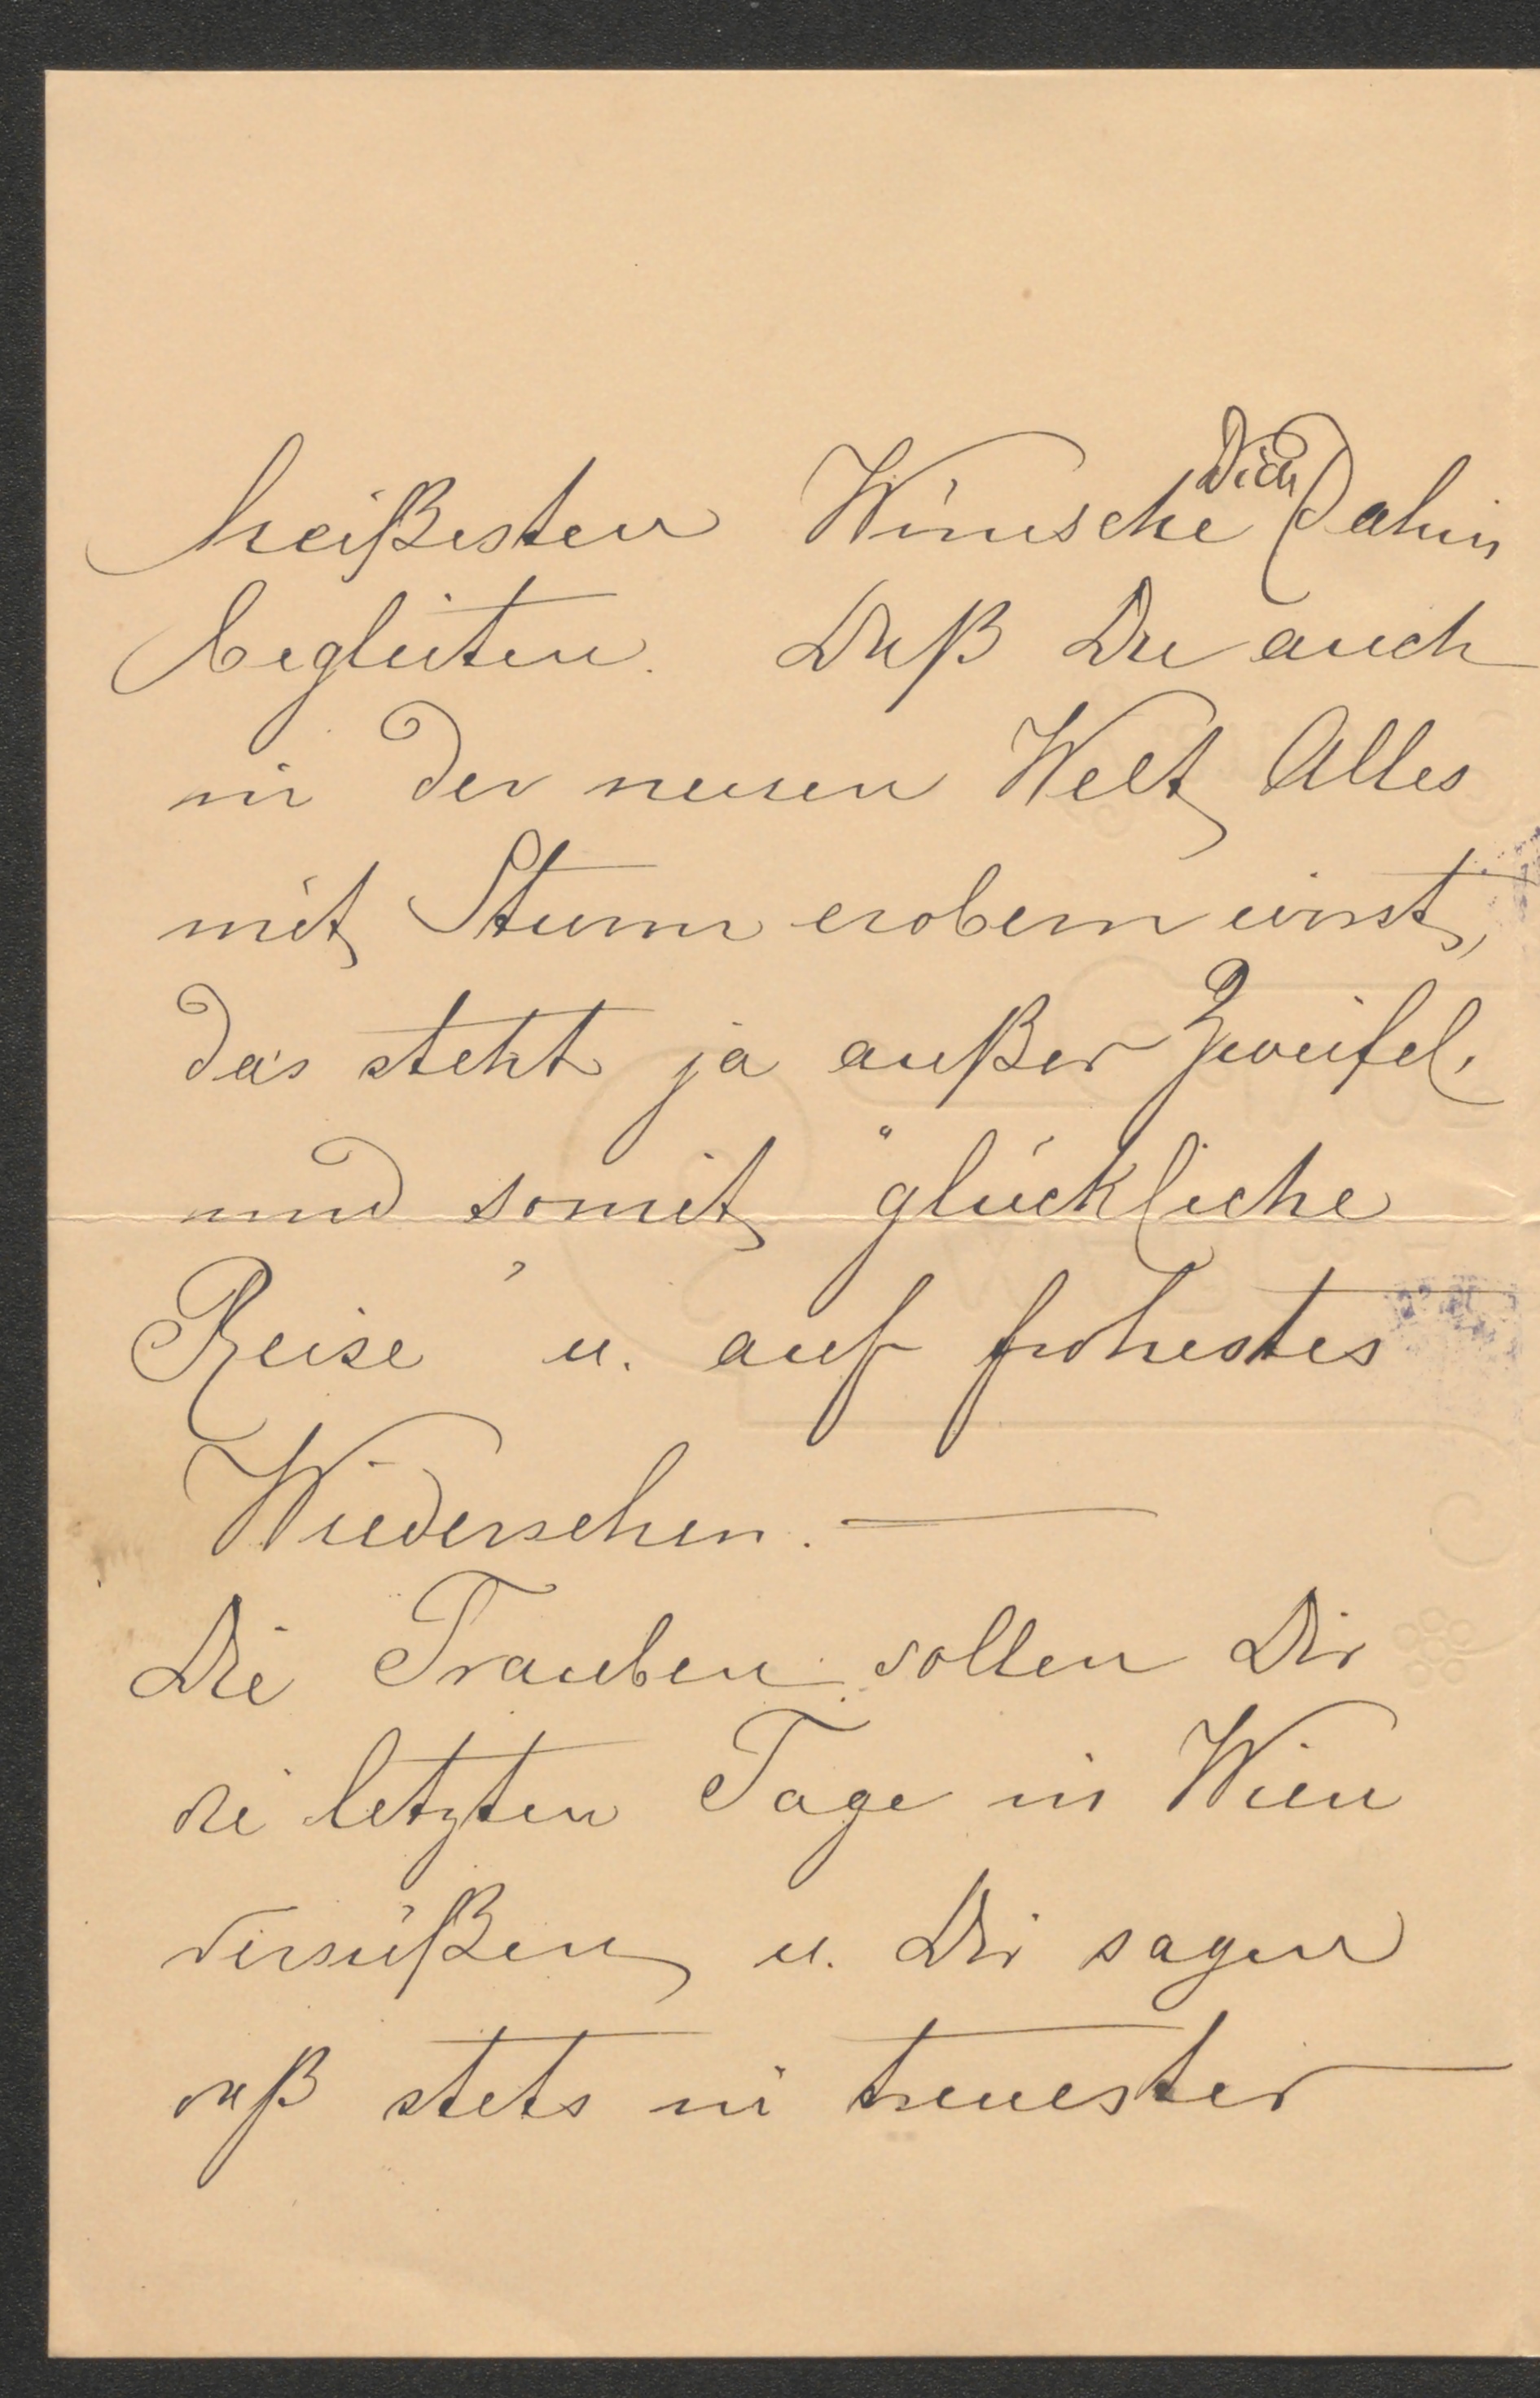 heißesten Wünsche Dich dahin
begleiten. Daß Du auch
in der neuen Welt Alles
mit Sturm erobern wirst,
das steht ja außer Zweifel,
und somit "glückliche
Reise" u. auf frohestes
Wiedersehen. —
Die Trauben sollen Dir
die letzten Tage in Wien
versüßen u. Dir sagen
daß stets in treuester